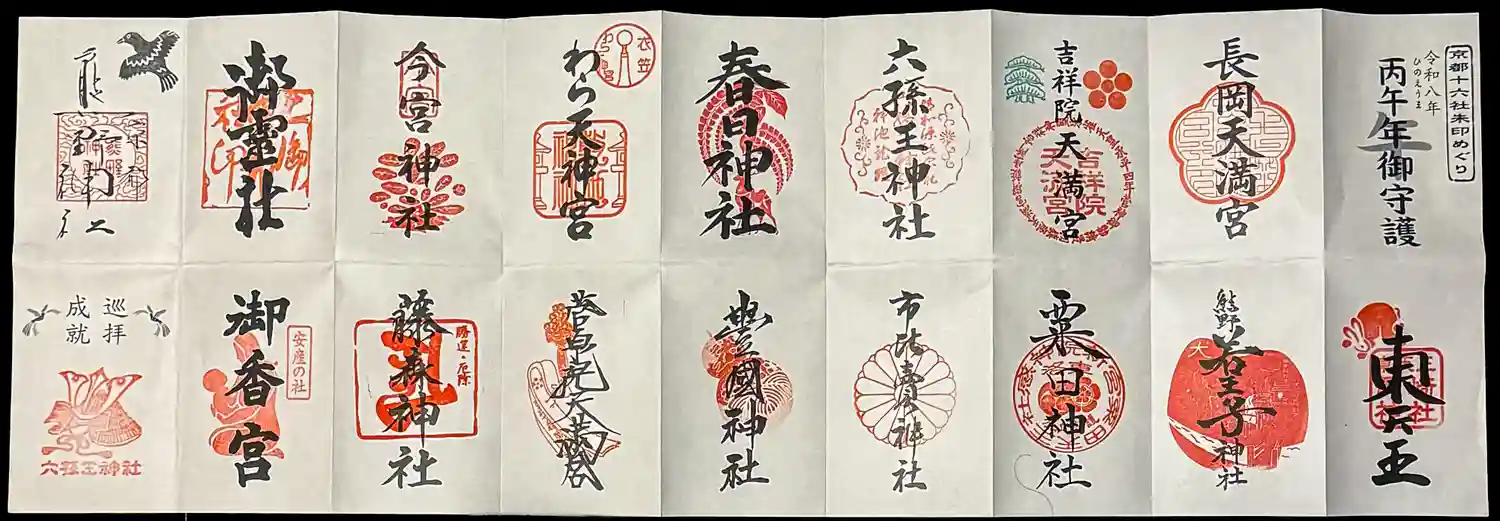 京都十六社朱印めぐり
令和八年
ひのえうま
丙午年御守護
長岡天満宮
吉祥院天満宮
吉祥院
天満宮
六孫王神社
春日神社
衣笠
わら天神宮
今宮神社
御靈社
東天王
熊野若王子神社
粟田神社
市比賣神社
豊國神社
菅原院天満宮
藤森神社
勝運・厄除
御香宮
安産の社
巡拝
成就
六孫王神社